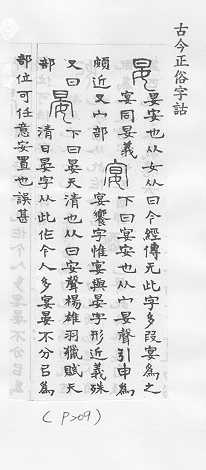 古今正俗字詁
妟 妟安也从女从日今經傳无此字多叚宴為之
宴同妟義
頗近又宀部
宴 下曰宴安也从宀妟聲引申為
宴饗字惟宴與晏字形近義殊
又日
部
晏 下曰晏天清也从日安聲楊雄羽獵賦天
清日晏字从此作今人多宴晏不分㠯為
部位可任意安置也誤甚
(P>09)